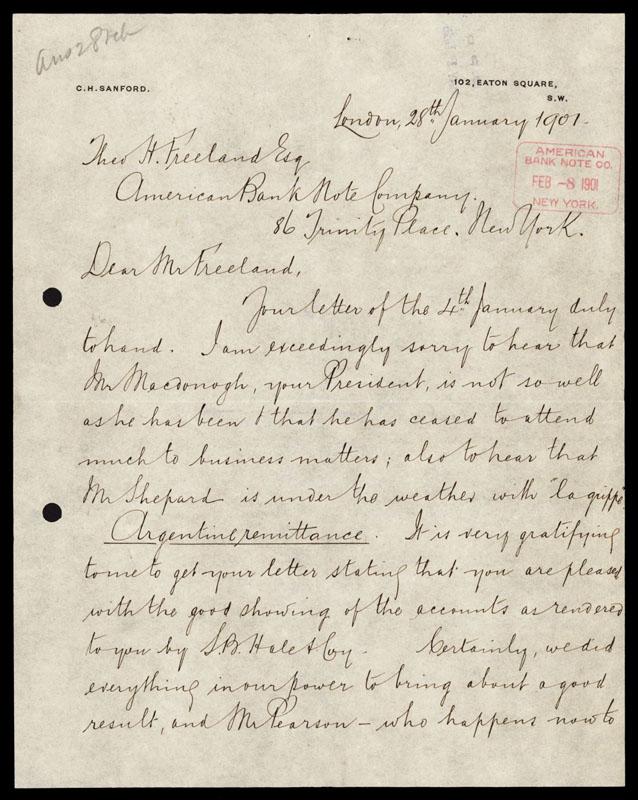 Ans 28 Feb
C.H. SANFORD.
102, EATON SQUARE,
S.W.
London, 28th January 1901.
Theo H. Freeland Esq
American Bank Note Company.
86 Trinity Place. New York.
AMERICAN
BANK NOTE CO.
FEB -8 1901
NEW YORK.
Dear Mr Freeland,
Your letter of the 4th January duly
to hand. I am exceedingly sorry to hear that
Mr Macdonogh, your President, is not so well
as he has been & that he has ceased to attend
much to business matters; also to hear that
Mr Shepard is under the weather with "la grippe"
Argentine remittance. It is very gratifying
to me to get your letter stating that you are pleased
with the good showing of the accounts as rendered
to you by S.B. Hale & Coy. Certainly, we did
everything in our power to bring about a good
result, and Mr Pearson – who happens now to